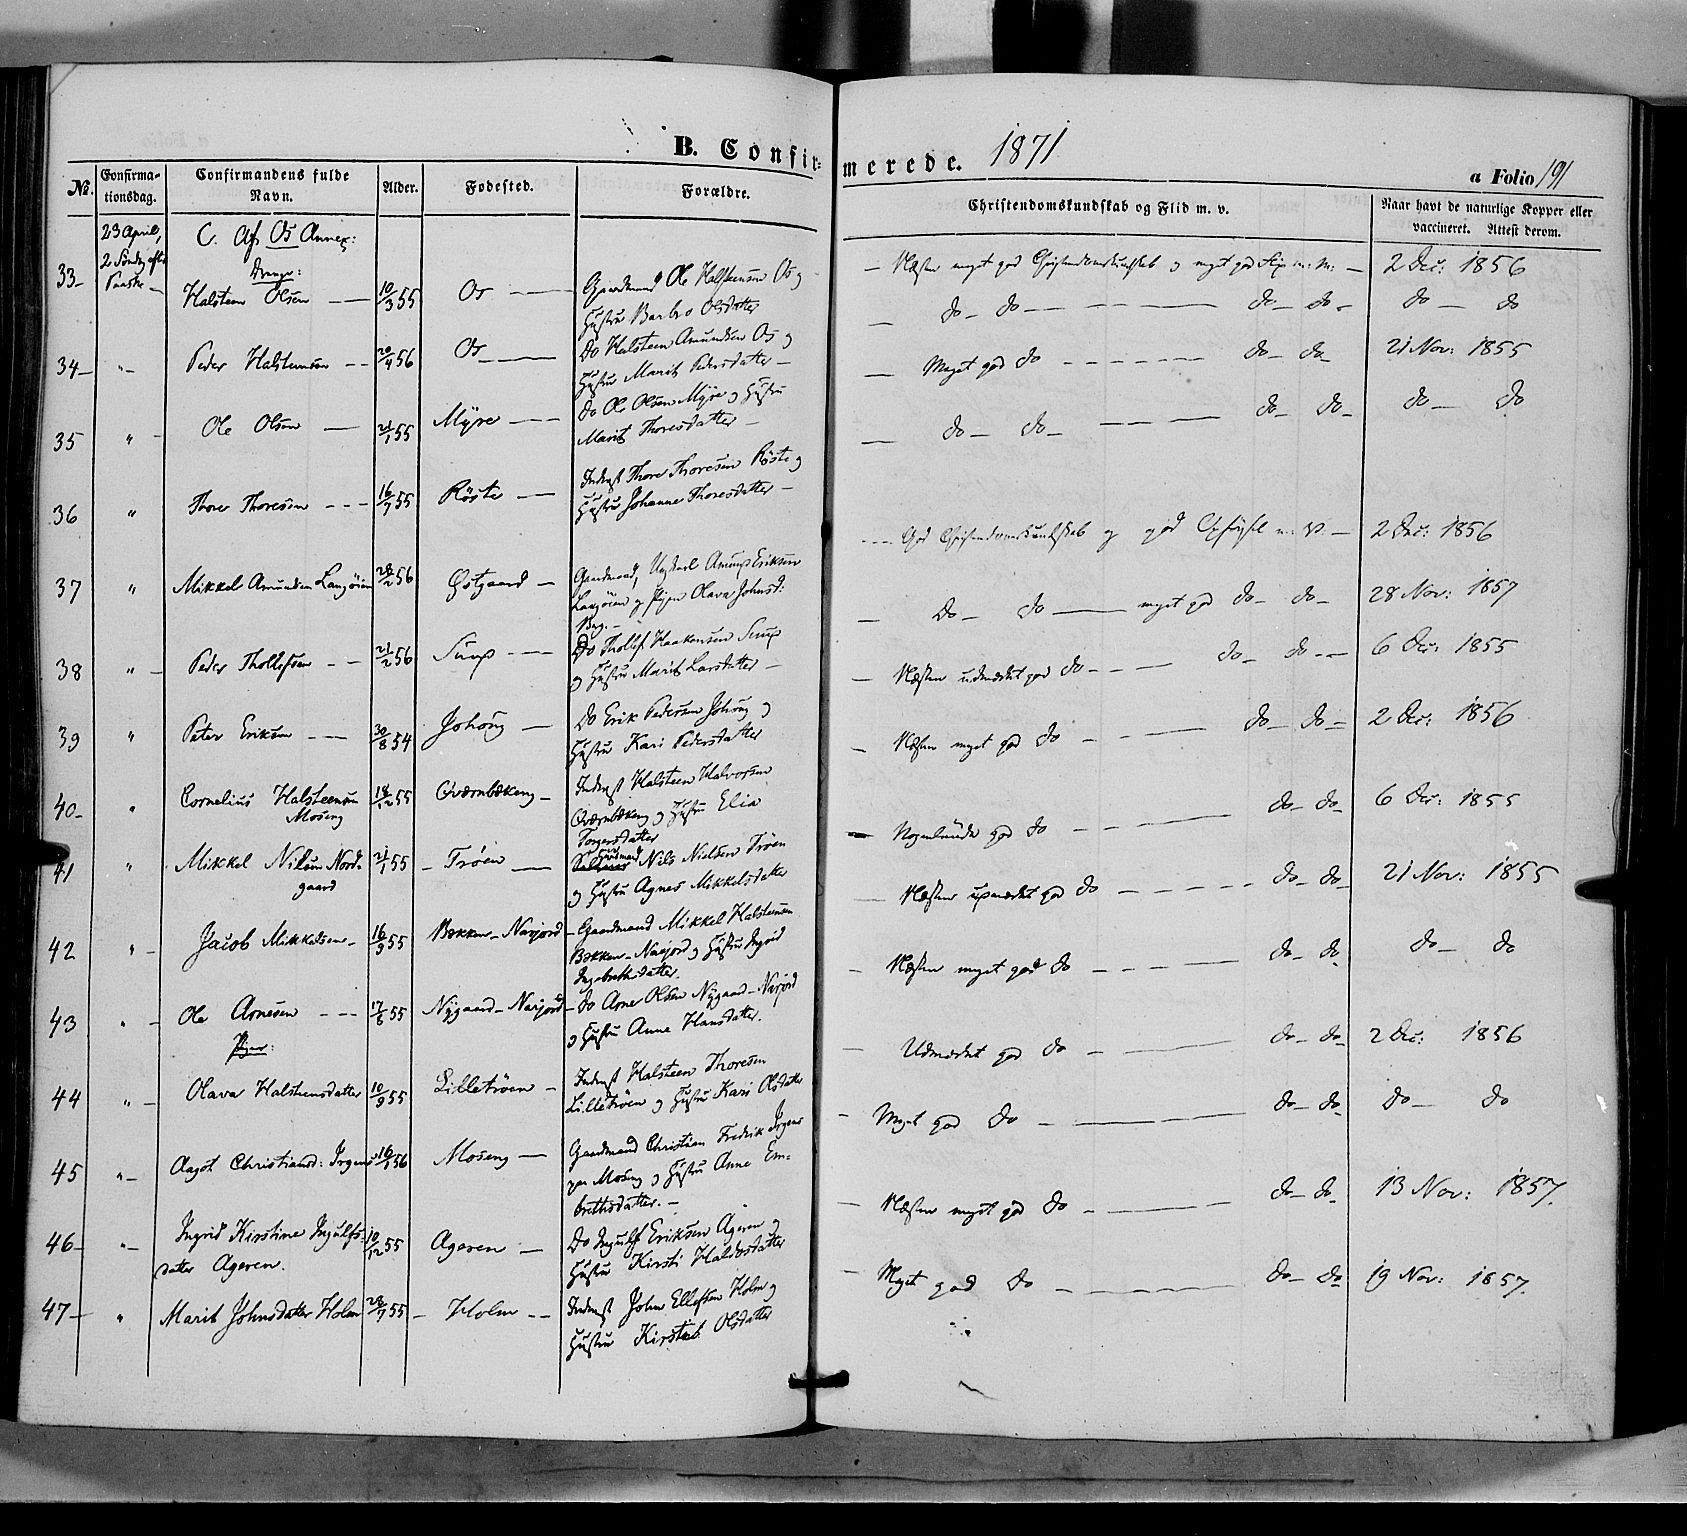 B. Confir-
merede. 1871
a Folio 191
No. Confirma-
tionsdag. Confirmandens fulde
Navn. Alder. Fødested. Forældre. Christendomskundskab og Flid m. v. Naar havt de naturlige Kopper eller
vaccineret. Attest derom.
23 April,
2 Søndag efter
Paaske
C. Af Os Annex:
Drenge:
33 Halsteen Olsen 10/3 55 Os Gaardmand Ole Halsteensen Os og
Hustru Barbro Olsdatter
Næsten meget god Christendomskundskab og meget god Flid m. v. 2 Dec: 1856
34 Peder Halsteensen 20/4 56 Os Do Halsteen Amundsen Os og
Hustru Marit Pedersdatter
do do do do do do
35 Ole Olsen 21/1 55 Myre Do Ole Olsen Myre og Hustru
Marit Thoresdatter
Meget god do do do 21 Nov: 1855
36 Thore Thoresen 16/7 55 Røste Inderst Thore Thoresen Røste og
Hustru Johanne Thoresdatter
do do do do do do
37 Mikkel Amundsen Langøien 28/2 56 Østgaard Gaardmand, Ungkarl Amund Eriksen
Langøien og Pigen Olava Johnsd:
God Christendomskundskab og god m. v. 2 Dec: 1856
38 Peder Thollefsen 21/2 56 Do Thollef Haakensen
og Hustru Marit Larsdatter
Do do meget god do do 28 Nov: 1857
39 Peter Eriksen 30/8 54 Johong Do Erik Pedersen Johong og
Hustru Kari Pedersdatter
Næsten udmærket god do do do 6 Dec: 1855
40 Cornelius Halsteensen
Moseng 18/12 55 Qværnbækeng Inderst Halsteen Halvorsen
Qværnbækeng og Hustru Elia
Torgersdatter
Næsten meget god do do do 2 Dec: 1856
41 Mikkel Nilsen Nord-
gaard 21/1 55 Trøen Nils Nielsen Trøen
og Hustru Agnes Mikkelsdatter
Nogenlunde god do do do 6 Dec: 1855
42 Jacob Mikkelsen 16/9 55 Bækken-Narjord Gaardmand Mikkel Halsteensen
Bækken-Narjord og Hustru Ingrid
Ingebrethsdatter.
Næsten udmærket god do do do 21 Nov: 1855
43 Ole Arnesen 17/6 55 Nygaard-Narjord Do Arne Olsen Nygaard-Narjord
og Hustru Anne Hansdatter.
Næsten meget god do do do do do
Piger:
44 Olava Halsteensdatter 10/9 55 Lilletrøen Inderst Halsteen Thoresen
Lilletrøen og Hustru Kari Olsdatter
Udmærket god do do do 2 Dec: 1856
45 Aagot Christiansd: Irgens 16/1 56 Moseng Gaardmand Christian Fredrik Irgens
paa Moseng og Hustru Anne Em-
brethsdatter.
Meget god do do do do do
46 Ingrid Kirstine Ingulfs-
datter Ageren. 10/12 55 Ageren Do Ingulf Eriksen Ageren og
Hustru Kirsti Haldosdatter
Næsten meget god do do do 13 Nov: 1857.
47 Marit Johnsdatter Holm 28/7 55 Holm Inderst John Ellefsen Holm og
Hustru Olsdatter
Meget god do do do 19 Nov: 1857.